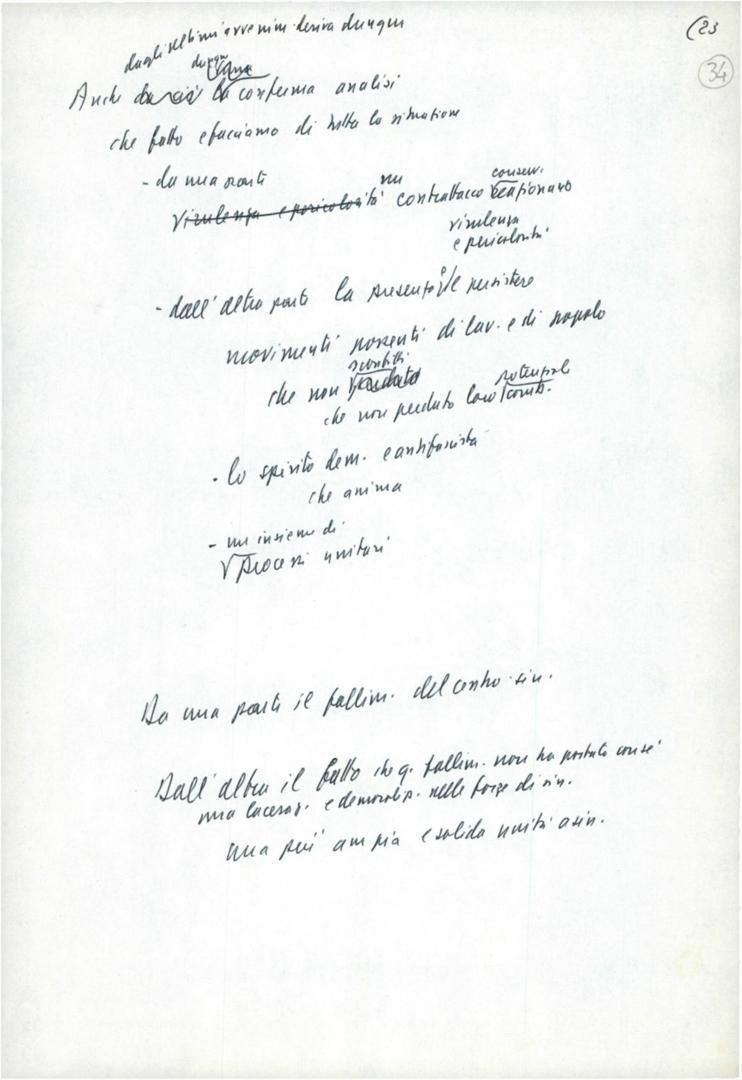 (23
34
dagli ultimi avvenim. deriva dunque
dunque
Anche da ciò la conferma analisi
che fatto e facciamo di tutta la situazione
- da una parte
un conserv.
virulenza e pericolosità contrattacco reazionario
virulenza
e pericolosità
- dall'altra parte la presenza e il persistere
movimenti possenti di lav. e di popolo
sconfitti
che non perduto
potenziale
che non perduto loro comb.
- lo spirito dem. e antifascista
che anima
- un insieme di
processi unitari
Da una parte il fallim. del centro-sin.
Dall'altra il fatto che q. fallim. non ha portato con sé
una laceraz. e demoralizz. nelle forze di sin.
una più ampia e solida unità a sin.